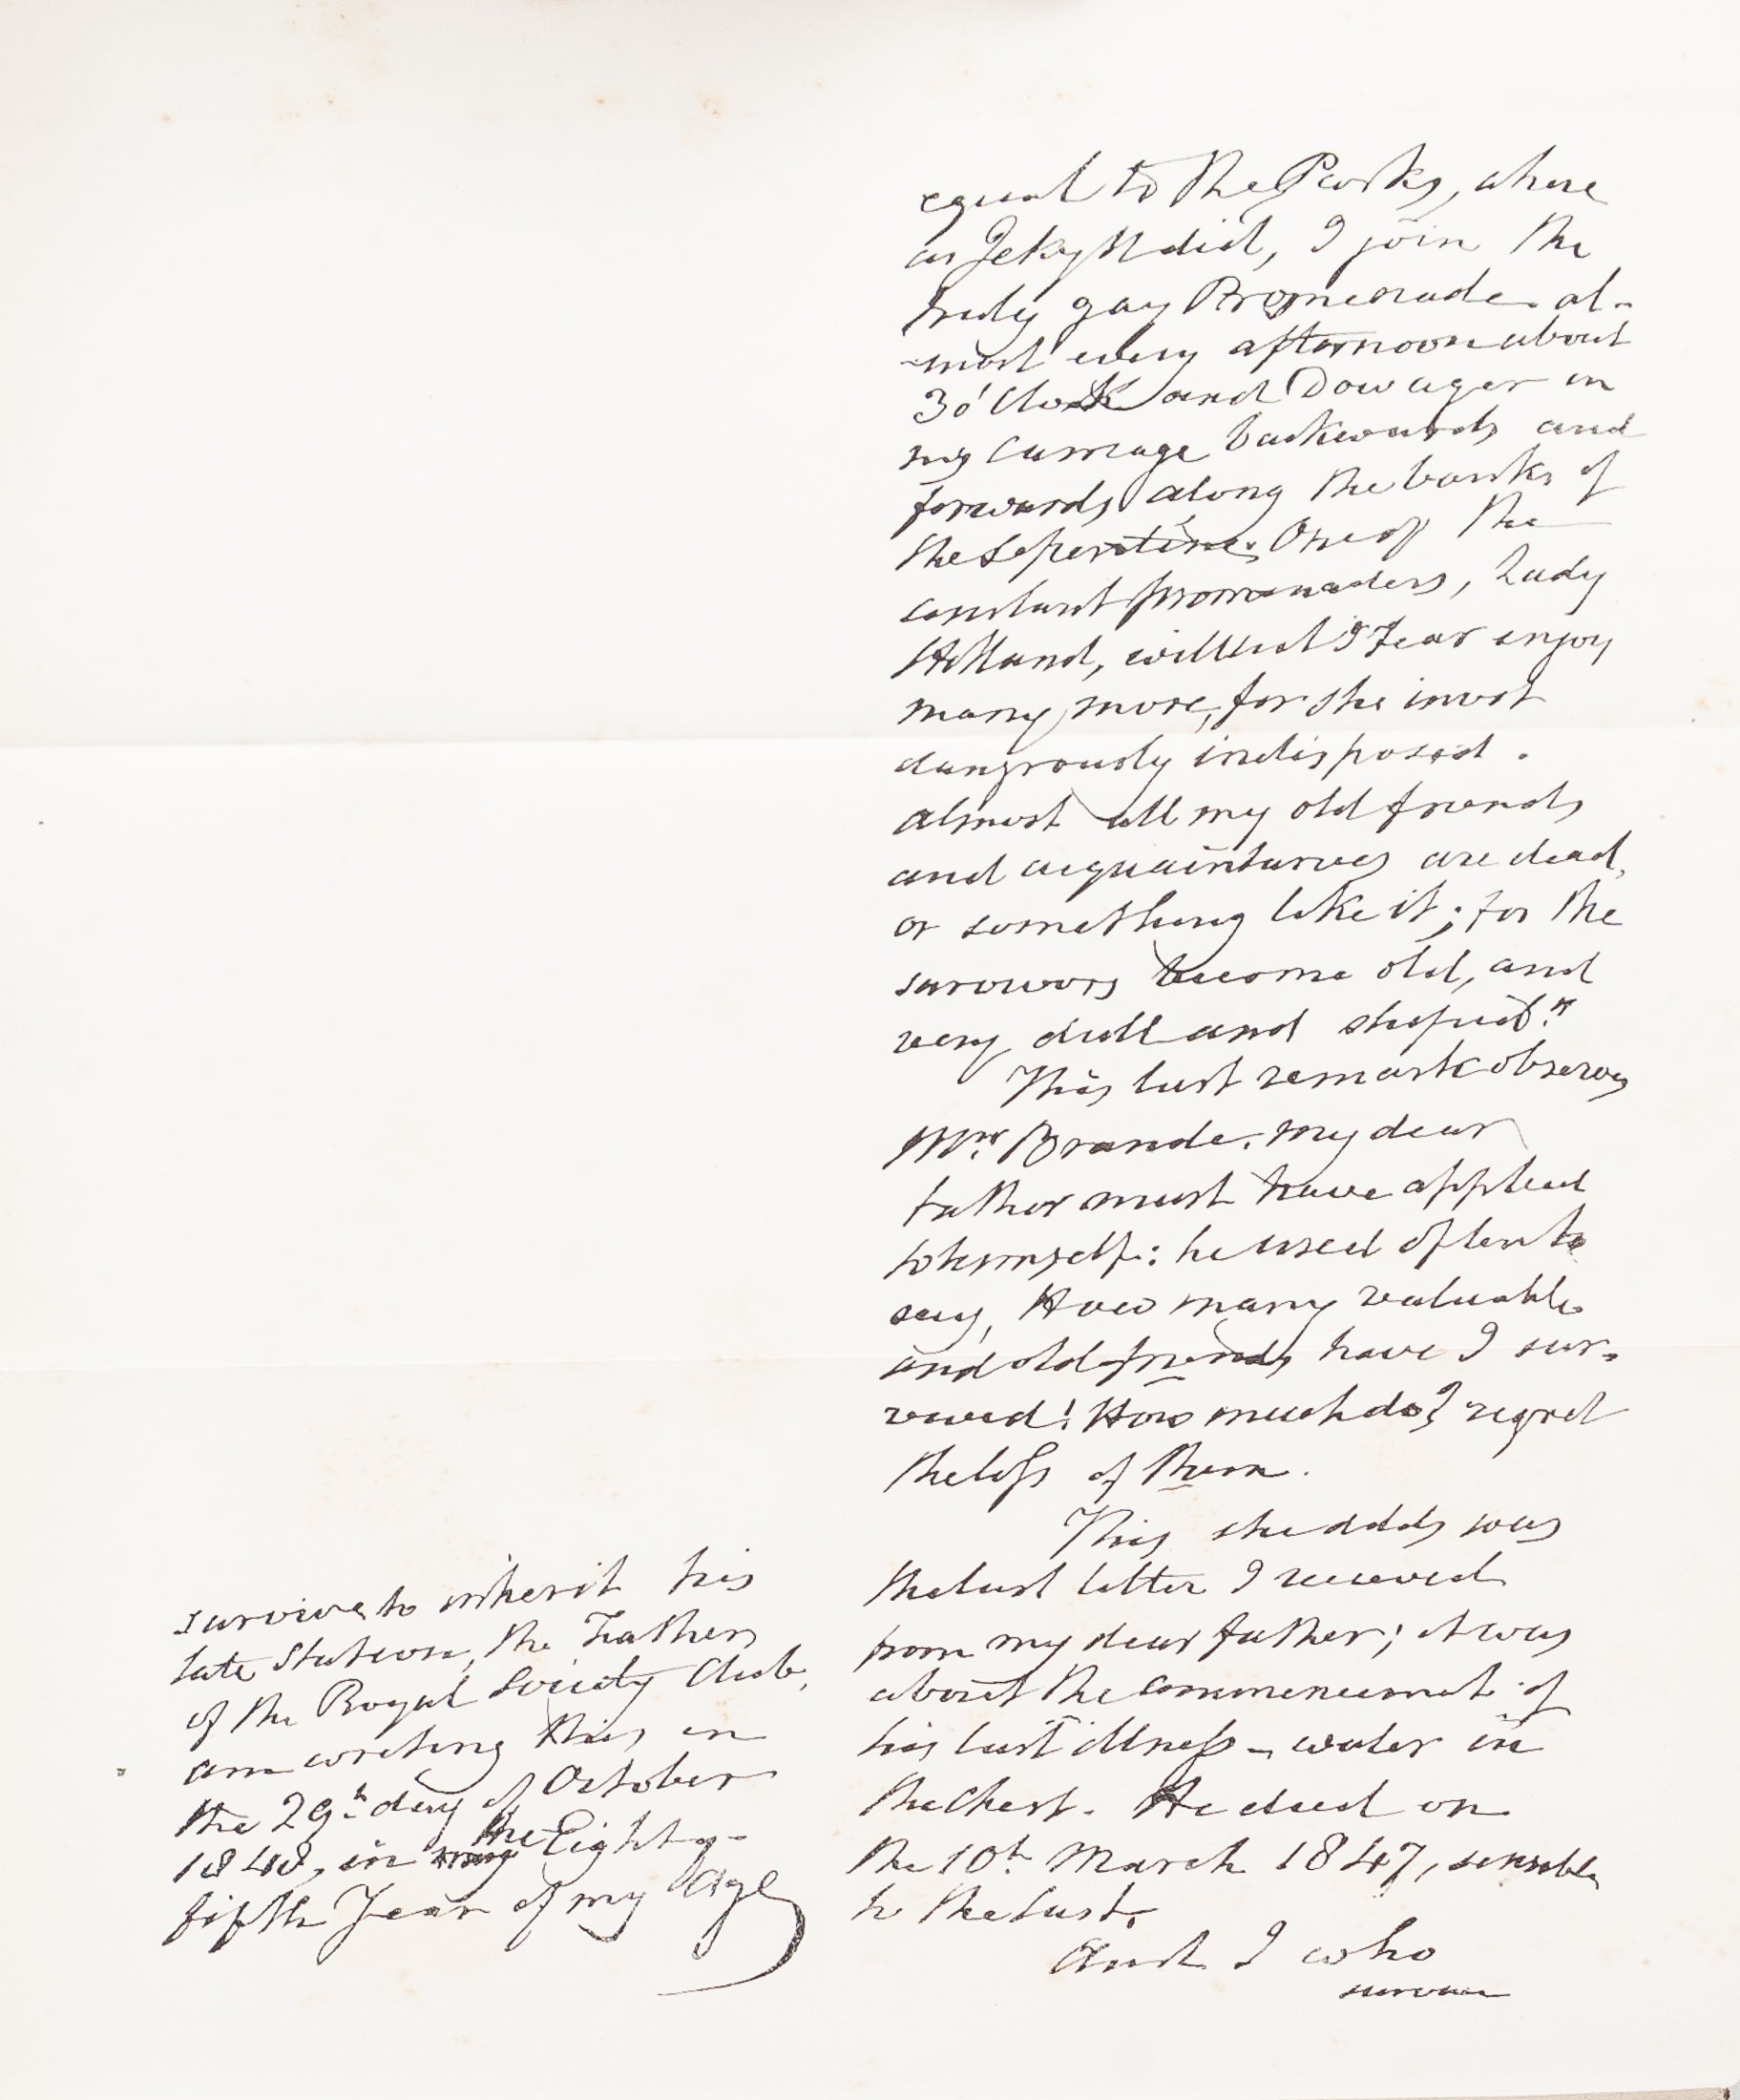 equal to the Parks, where
as Jekyll did, I join the
truly gay Promenade al-
-most every afternoon about
3 o'Clock and Dowager in
my Carriage backwards and
forwards along the banks of
the Sepentine. One of the
constant promenaders, Lady
Holland, will not I fear enjoy
many more, for she is most
dangrously indisposed.
almost all my old friends
and acquaintances are dead,
or something like it; for the
survivors become old, and
very dull and stupid."
This last remark observes
Mrs. Brande, my dear
father must have applied
to himself: he used often to
say, How many valuable
and old friends have I sur-
vived! How much do I regret
the loss of them.
This she adds was
the last letter I received
from my dear father; it was
about the commencement of
his last illness - water in
the Chest. He died on
the 10th March 1847, sensible
to the last.
And I who
survive
survive to inherit his
late Station, the Father
of the Royal Society Club,
am writing this on
the 29th day of October
1848, in the Eighty-
fifth Year of my Age